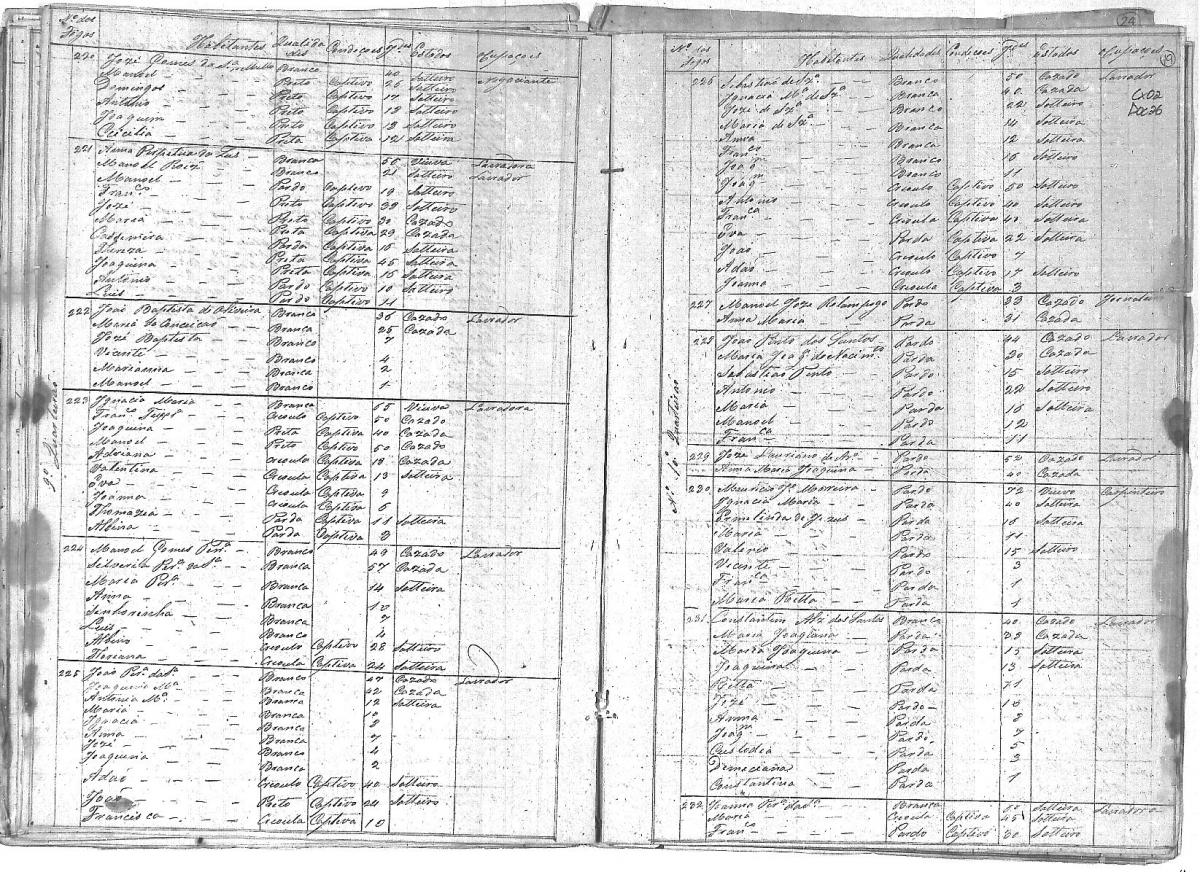 Nº dos Fogos Habitantes Qualidades Condições Estados Ocupações
220 Jozé Gomes da Sª Mello Branco 40 Solteiro Negociante
Manoel Preto Captivo 25 Solteiro
Domingos Preto Captivo 17 Solteiro
Antonio Preto Captivo 12 Solteiro
Joaquim Preto Captivo 13 Solteiro
Cecilia Preta Captiva 12 Solteira
221 Anna Perpetua de Jezus Branca 50 Viuva Lavradora
Manoel Roiz Branco 21 Solteiro Lavrador
Manoel Pardo Captivo 19 Solteiro
Franco Preto Captivo 32 Solteiro
Jozé Preto Captivo 30 Cazado
Maria Preta Captiva 29 Cazada
Cazemira Parda Captiva 16 Solteira
Preta Captiva 45 Solteira
Joaquina Preta Captiva 15 Solteira
Antonio Pardo Captivo 10 Solteiro
Luis Pardo Captivo 11
222 João Baptista de Oliveira Branco 36 Cazado Lavrador
Maria da Conceicao Branca 25 Cazada
Jozé Baptista Branco 7
Vicente Branco 4
Marianna Branca 2
Manoel Branco 1
9º Quarteirão
223 Ignacia Maria Branca 65 Viuva Lavradora
Franco Creoulo Captivo 50 Cazado
Joaquina Preta Captiva 40 Cazada
Manoel Preto Captivo 50 Cazado
Adriana Creoula Captiva 18 Cazada
Valentina Creoula Captiva 13 Solteira
Eva Creoula Captiva 9
Joanna Creoula Captiva 6
Thomazia Parda Captiva 11 Solteira
Albina Parda Captiva 3
224 Manoel Gomes Perª Branco 49 Cazado Lavrador
Silveria Perª da Sª Branca 57 Cazada
Maria Perª Branca 14 Solteira
Anna Branca 10
Senhorinha Branca 7
Luis Branco 4
Albino Creoulo Captivo 28 Solteiro
Floriana Creoula Captiva 24 Solteira
225 João Perª da Sª Branco 47 Cazado Lavrador
Joaquina Mª Branca 42 Cazada
Antonia Mª Branca 12 Solteira
Maria Branca 10
Ignacia Branca 8
Anna Branca 7
Jozé Branco 4
Joaquina Branca 2
Adão Creoulo Captivo 40 Solteiro
José Preto Captivo 24 Solteiro
Francisca Creoula Captiva 10
24
19
Nº dos Fogos Habitantes Qualidades Condições Estados Ocupações
Cx02
Doc26
226 Sebastião de Szª Branco 50 Cazado Lavrador
Ignacia Mª de Szª Branca 40 Cazada
Jozé de Szª Branco 22 Solteiro
Maria de Szª Branca 14 Solteira
Anna Branca 12 Solteira
Franco Branco 15 Solteiro
Joaqm Branco 11
Joaqm Creoulo Captivo 50 Solteiro
Antonio Creoulo Captivo 40 Solteiro
Franca Creoula Captiva 40 Solteira
Eva Parda Captiva 22 Solteira
João Creoulo Captivo 7
Adão Creoulo Captivo 17 Solteiro
Joanna Creoula Captiva 3
227 Manoel Joze Relampogo Pardo 33 Cazado Jornaleiro
Anna Maria Parda 31 Cazada
Nº 10º Quarteirão
228 João Pinto dos Santos Pardo 44 Cazado Lavrador
Maria Joaqª do Nacimto Parda 30 Cazada
Sebastião Pinto Pardo 15 Solteiro
Antonio Pardo 22 Solteiro
Maria Parda 16 Solteira
Manoel Pardo 12
Franca Parda 11
229 Joze Lauriano de Pardo 52 Cazado Lavrador
Anna Maria Joaquina Parda 40 Cazada
230 Mauricio Je Moreira Pardo 72 Viuvo Carpinteiro
Ignacia Maria Parda 40 Solteira
Ermelinda de Jezus Parda 16 Solteira
Maria Parda 11
Valerio Pardo 15 Solteiro
Vicente Pardo 3
Franca Parda 1
Maria Ritta Parda 1
231 Constantino Alz dos Santos Branco 40 Cazado Lavrador
Maria Caetana Parda 32 Cazada
Maria Joaquina Parda 15 Solteira
Joaquina Parda 13 Solteira
Ritta Parda 11
Jozé Pardo 10
Anna Parda 8
Joaqm Pardo 7
Custodia Parda 5
Demeciana Parda 3
Constantina Parda 1
232 Joanna Perª da Sª Branca Solteira Lavradora
Maria Creoula Captiva 45 Solteira
Franco Pardo Captivo 30 Solteiro